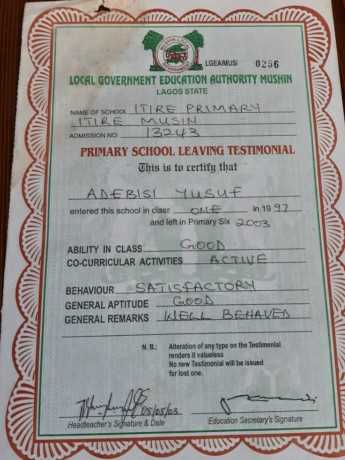 LGEA/MUS/ 0256
LOCAL GOVERNMENT EDUCATION AUTHORITY MUSHIN
LAGOS STATE
NAME OF SCHOOL ITIRE PRIMARY
ITIRE MUSIN
ADMISSION NO 13243
PRIMARY SCHOOL LEAVING TESTIMONIAL
This is to certify that
ADEBISI YUSUF
entered this school in class ONE in 1997
and left in Primary Six 2003
ABILITY IN CLASS GOOD
CO-CURRICULAR ACTIVITIES ACTIVE
BEHAVIOUR SATISFACTORY
GENERAL APTITUDE GOOD
GENERAL REMARKS WELL BEHAVED
N. B.: Alteration of any type on the Testimonial
renders it valueless
No new Testimonial will be issued
for lost one.
05/05/03
Headteacher's Signature & Date
Education Secretary's Signature